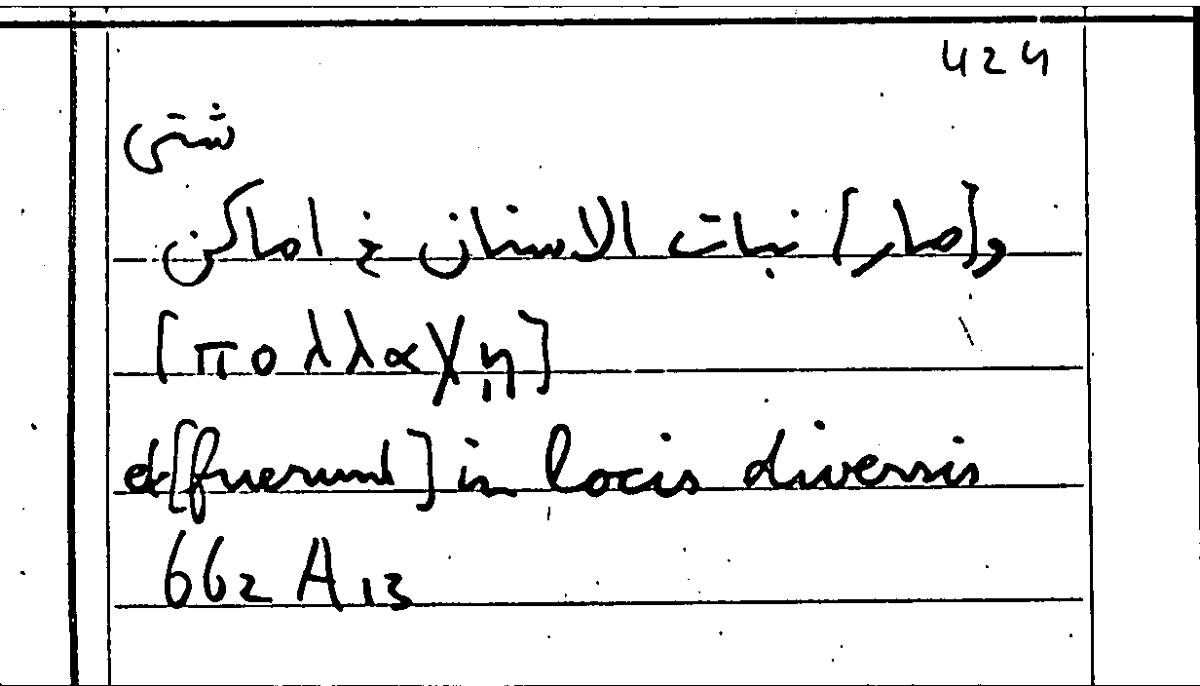 424
شتى
و[صار] نبات الاسنان في اماكن
[πολλαχῃ]
et[fuerunt] in locis diversis
662 A 13